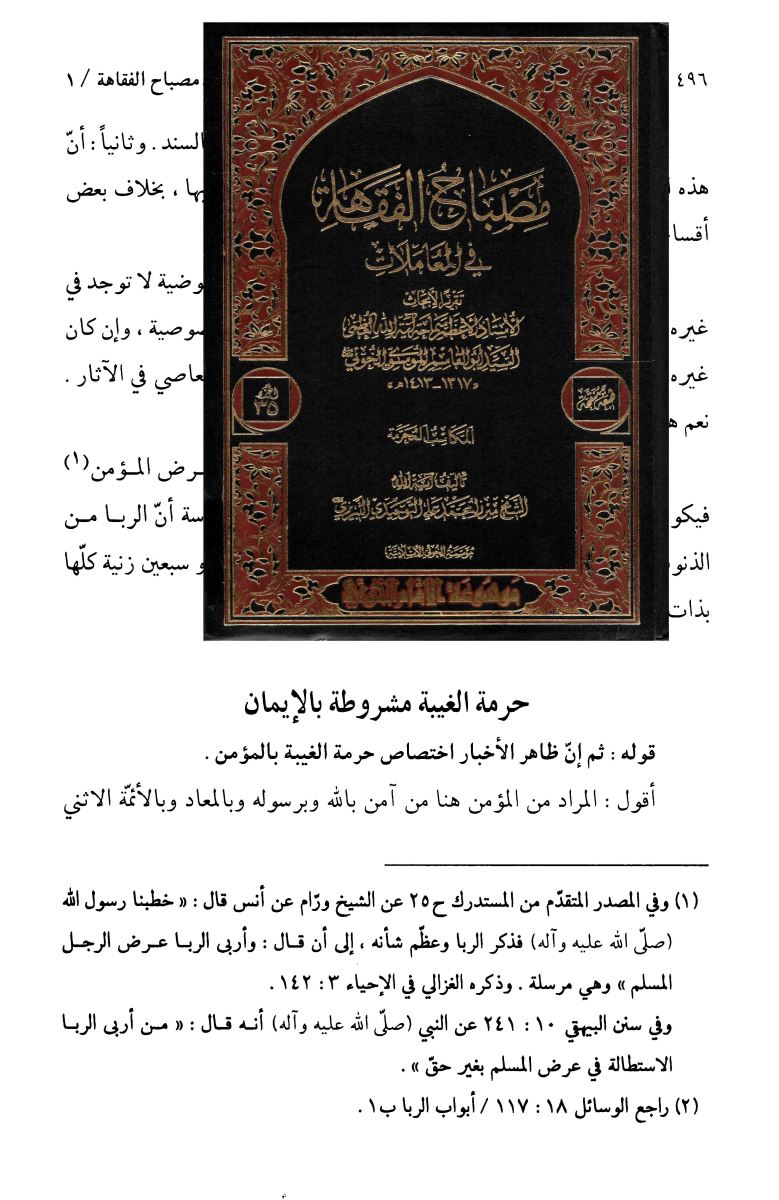 ٤٩٦
مصباح الفقاهة / ١
السند . وثانياً : أنّ
هذه
بها ، بخلاف بعض
غيره
لا توجد في
خصوصية ، وإن كان
غيره
في الآثار .
نعم
المـؤمن(١)
أنّ الربـا مـن
سبعين زنية كلّها
بذات
مصباح الفقاهة
في المعاملات
تقرير الأبحاث
الأستاذ الأعظم سماحة آية الله العظمى
السيد أبو القاسم الموسوي الخوئي
«١٣١٧-١٤١٣هـ»
الجزء
٣٥
المكاسب المحرمة
تأليف آية الله
الشيخ ميرزا محمد علي التوحيدي التبريزي
مؤسسة الخوئي الإسلامية
موسوعة الإمام الخوئي
حرمة الغيبة مشروطة بالإيمان
قوله : ثم إنّ ظاهر الأخبار اختصاص حرمة الغيبة بالمؤمن .
أقول : المراد من المؤمن هنا من آمن بالله وبرسوله وبالمعاد وبالأئمّة الاثني
(١) وفي المصدر المتقدّم من المستدرك ح٢٥ عن الشيخ ورّام عن أنس قال : « خطبنا رسول الله
(صلّى الله عليه وآله) فذكر الربا وعظّم شأنه ، إلى أن قـال : وأربى الربـا عـرض الرجـل
المسلم » وهي مرسلة . وذكره الغزالي في الإحياء ٣ : ١٤٢ .
وفي سنن البيهقي ١٠ : ٢٤١ عن النبي (صلّى الله عليه وآله) أنـه قـال : « مـن أربى الربـا
الاستطالة في عرض المسلم بغير حقّ » .
(٢) راجع الوسائل ١٨ : ١١٧ / أبواب الربا ب١ .